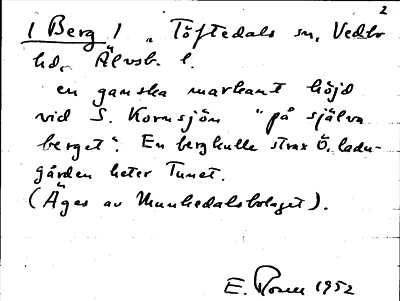 2
1 Berg / , Töftedals sn, Vedbo
hd, Älvsb. l.
en ganska markant höjd
vid S. Kornsjön "på själva
berget". En bergkulle strax Ö. ladu-
gården heter Tunet.
(Äges av Munkedalsbolaget).
E. 1952